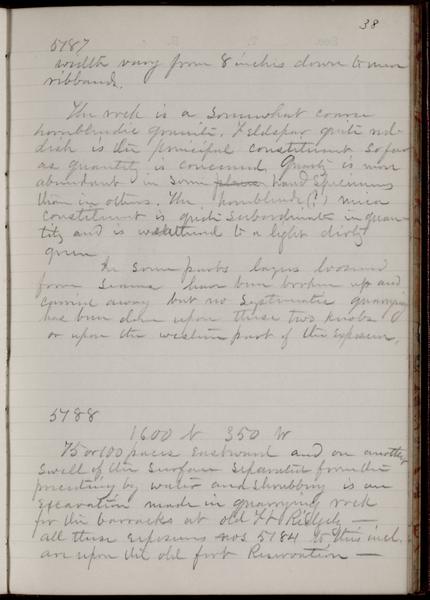 38
5187
width vary from 8 inches down to mere
ribbands.
The rock is a somewhat coarse
hornblendic granite. Feldspar quite red-
dish is the principal constituent so far
as quantity is concerned, Quartz is more
abundant in some places hand specimens
than in others. The hornblende (?) mica
constituent is quite subordinate in quan-
tity and is weathered to a light dirty
green
In some parts layers loosened
from seams have been broken up and
carried away but no systematic quarrying
has been done upon these two knobs
or upon the western part of the exposure.
5188
1600 N 350 W
75 or 100 paces eastward and on another
swell of the surface separated from the
preceding by water and shrubbery is an
excavation made in quarrying rock
for the barracks at old Ft. Ridgely —
all these exposures nos. 5184 to this incl.
are upon the old fort Reservation —